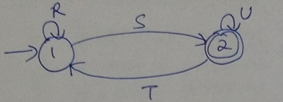 R
S
U
1
2
T